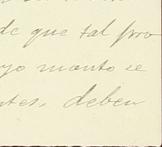 de que tal pro
yo manto se
ntes, deben